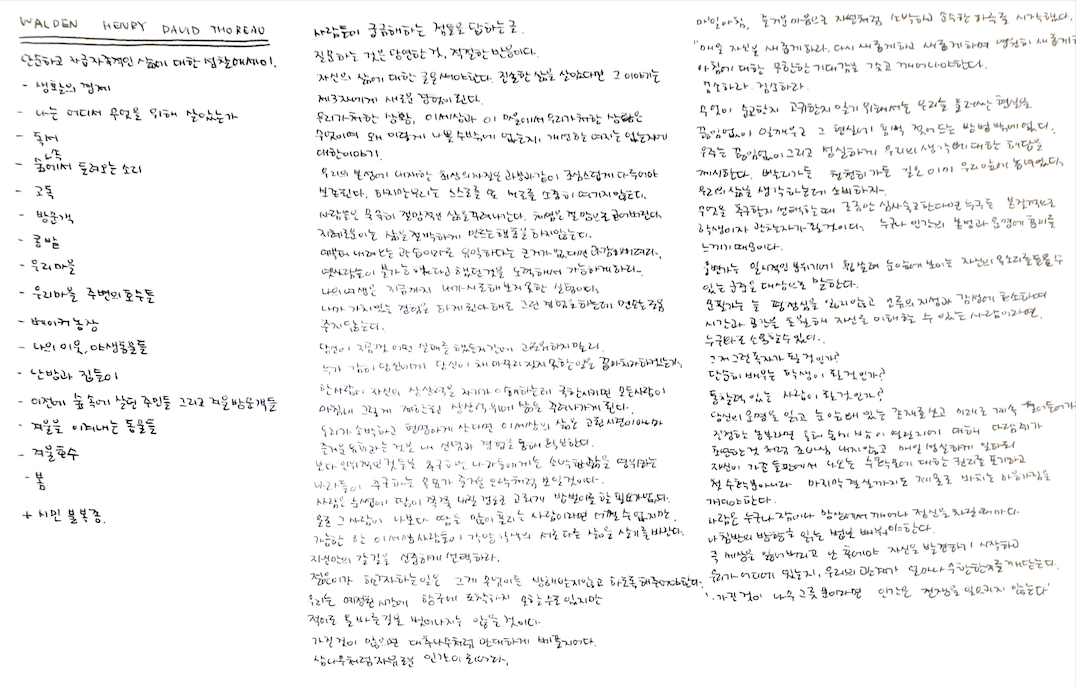 WALDEN HENRY DAVID THOREAU
단순하고 자급자족적인 삶에 대한 성찰에세이.
- 생활의 경제
- 나는 어디서 무엇을 위해 살았는가
- 독서
- 숲속에서 들려오는 소리
- 고독
- 방문객
- 콩밭
- 우리마을
- 우리마을 주변의 호수들
- 베이커농장
- 나의 이웃, 야생동물들
- 난방과 집들이
- 이전에 숲속에 살던 주민들 그리고 겨울방문객들
- 겨울을 이겨내는 동물들
- 겨울호수
- 봄
+ 시민 불복종.
사람들이 궁금해하는 점들을 답하는 글.
질문하는 것은 당연한 것, 적절한 반응이다.
자신의 삶에 대한 글을 써야한다. 진솔한 삶을 살았다면 그 이야기는
제3자에게 새로운 경험이 된다.
우리가처한 상황, 이세상과 이 마을에서 우리가처한 상황은
무엇이며 왜 이렇게 나쁠 수밖에 없는지, 개선할 여지는 없는지가
대한이야기.
우리의 본성에 내재한 최상의자질은 과분과같이 조심스럽게 다루어야
보존된다. 하지만우리는 스스로를 또 서로를 소중히 여기지않는다.
사람들은 묵묵히 절망적인 삶을 꾸려나간다. 체념은 절망으로 굳어버린다.
지혜로운이는 삶을 절박하게 만드는행동을 하지않는다.
예부터 내려오는 관습이라도 유일하다는 근거가없다면 과감히버려라.
옛사람들이 불가능 하다고 했던것을 노력해서 가능하게하라.
나의 여생은 지금까지 내가시도해보지 못한 실험이다.
내가 가치있는 경험을 하게된다해도 그런 경험을하는데 먼스승은
주지않는다.
당신이 지금껏 어떤 실패를 했든지간에 괴로워하지말라.
누가 감히 당신에게 당신이 채 마무리 짓지못한일을 꼽아치라하겠는가,
한사람이 자신의 상상력을 자기가 이해하는데 국한시키면 모든사람이
마침내 그렇게 제한된 상상력위에 삶을 꾸려나가게 된다.
우리가 소박하고 현명하게 산다면 이세상의 삶은 고된시련이아니라
즐거운유희라는것을 내 신념과 경험을 통해 확신한다.
보다 인위적인 것들을 추구하는 나라들에게는 소박한삶을 영위하는
나라들이 추구하는 일들이 즐거운오락처럼 보일것이다.
사람은 눈썹에 땀이 쭉쭉 내릴 정도로 고되게 밥벌이를 할필요가없다.
물론 그사람이 나보다 땀을 많이 흘리는 사람이라면 어쩔 수 없지만.
가능한 한 이세상사람들이 각양각색의 서로다른 삶을 살기를바란다.
자신만의 갈길을 신중하게 선택하라.
젊은이가 하고자하는일은 그게 무엇이든 방해받지않고 하도록 해주어야한다.
우리는 예정된시간에 항구에 도착하지 못할수도 있지만
적어도 올바른길을 벗어나지는 않을 것이다.
가진것이 많으면 대추나무처럼 관대하게 베풀지어다.
삼나무처럼 자유로운 인간이 되어라.
매일아침, 즐거운마음으로 자연처럼 소박하고 순수한 하루를 시작했다.
"매일 자신을 새롭게하라. 다시 새롭게하고 새롭게하며 영원히 새롭게
아침에 대한 무한한기대감을 갖고 깨어나야한다.
검소하라. 검소하라.
무엇이 숭고한지 고귀한지 알기 위해서는 우리를 둘러싼 현실을
끊임없이 일깨우고 그 현실에 흠뻑 젖어드는 방법밖에없다.
우주는 끊임없이 그리고 성실하게 우리의 생각에 대한 해답을
제시한다. 빨리가든 천천히가든 길은 이미 우리앞에 놓여있다.
우리의삶을 생각하는데에 소비하자.
무엇을 추구할지 선택할때 조금만 심사숙고한다면 누구든 본질적으로
학생이자 관찰자가될것이다, 누구나 인간의 본성과 운명에 흥미를
느끼기 때문이다.
웅변가는 일시적인 분위기에 휩쓸려 눈앞에보이는 자신의목소리를들을수
있는 군중을 대상으로 말한다.
문필가는 늘 평정심을 잃지않고 인류의지성과 감성에 호소하며
시간과 공간을 초월해 자신을 이해할 수 있는사람이라면.
누구와도 소통할수있다.
그저그런독자가 될 것인가?
단순히 배우는 학생이 될것인가?
통찰력 있는 사람이 될것인가?
당신의운명을 읽고 눈앞에 있는 존재를보고 미래로 계속 걸어들어가라
진정한 농부라면 올해 숲에 밤이 열릴지에 대해 다람쥐가
초연한것 처럼 조바심 내지않고 매일 성실하게 일하되
자신이 가꾼 들판에서 나오는 수확물에 대한 권리를 포기하고
첫수확물뿐아니라 마지막결실까지도 제물로 바치는 마음가짐을
가져야한다.
사람은 누구나 잠이나 망상에서 깨어나 정신을 차릴때마다.
나침반의방향을 읽는 법을 배워야한다.
즉 세상을 잃어버리고 난 후에야 자신을 발견하기 시작하고
우리가어디에 있는지, 우리의관계가 얼마나 무한한지를 깨닫는다.
'가진것이 나무그릇 뿐이라면 인간은 전쟁을일으키지 않는다'